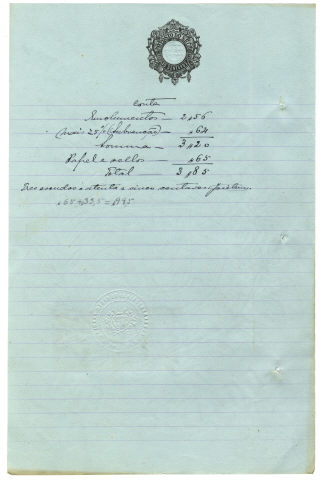 Conta
Emolumentos — 2$56
(mais 25% (subvenção) — $64
Somma — 3$20
Papel e sellos — $65
Total — 3$85
Tres escudos e oitenta e cinco centavos.